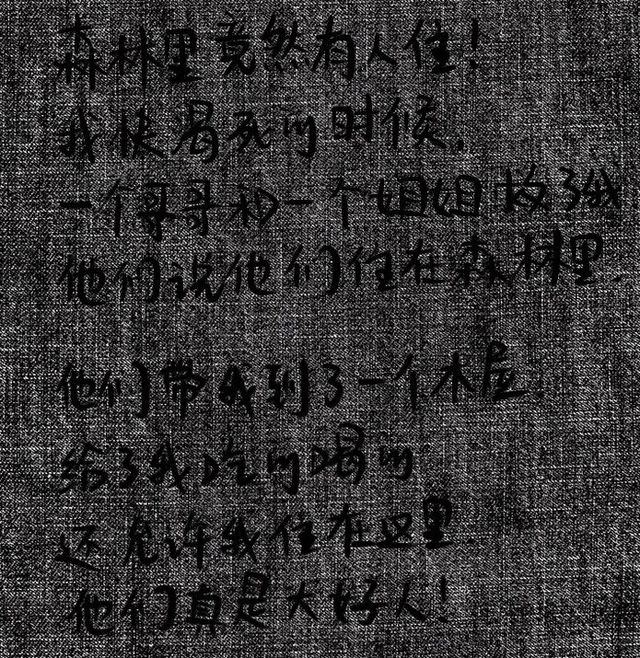 森林里竟然有人住!
我快渴死的时候,
一个哥哥和一个姐姐救了我
他们说他们住在森林里
他们带我到了一个木屋!
给了我吃的喝的
还允许我住在这里
他们真是大好人!